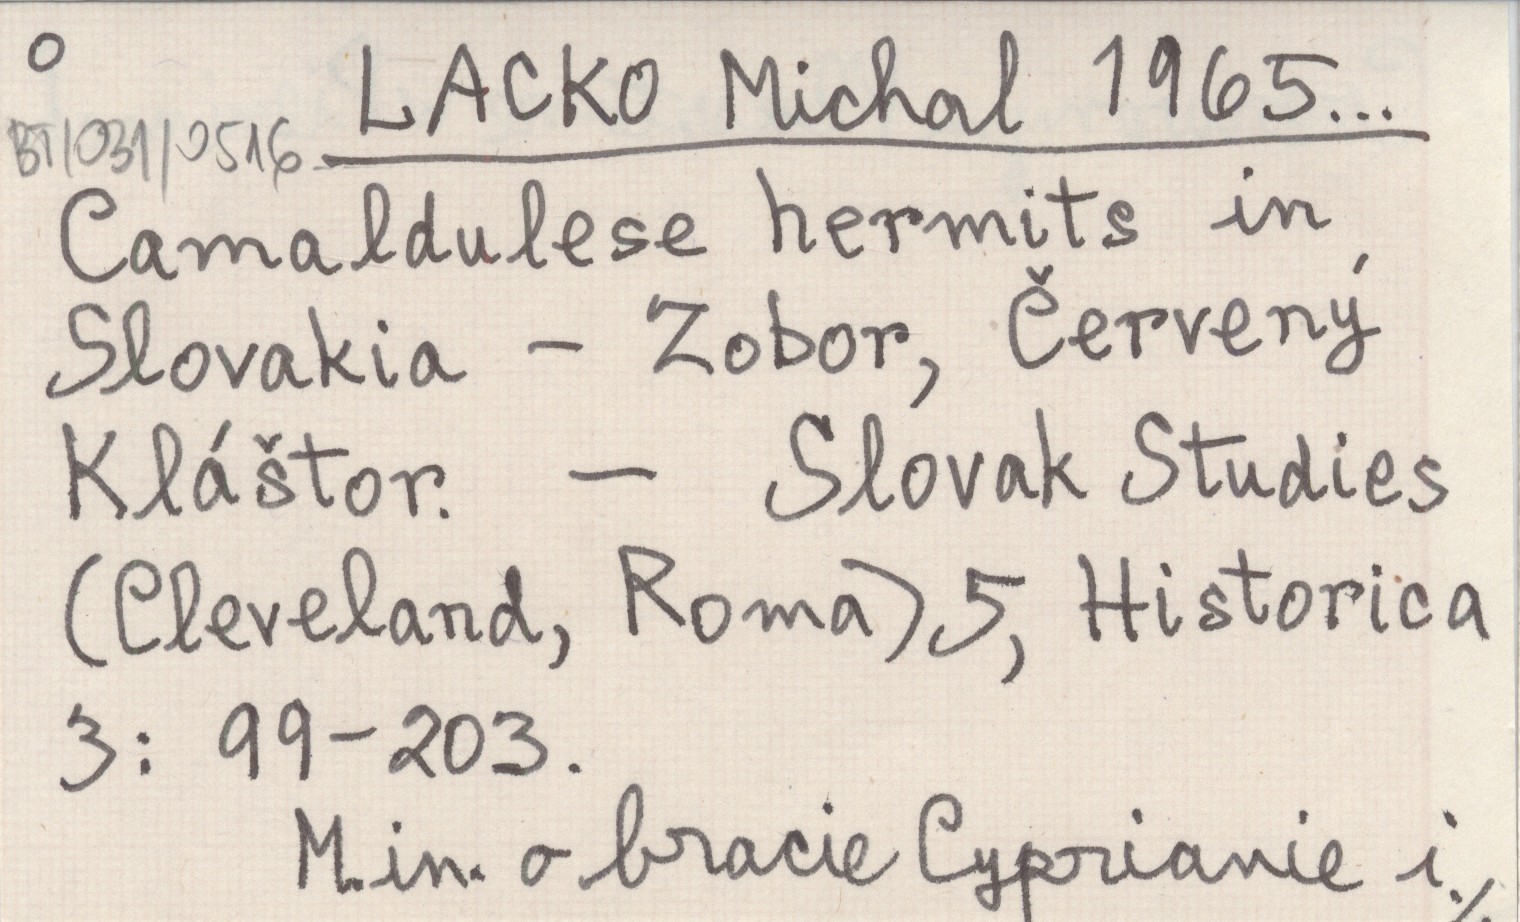 O
LACKO Michal 1965...
BT/031/0516
Camaldulese hermits in
Slovakia – Zobor, Červený
Kláštor. — Slovak Studies
(Cleveland, Roma) 5, Historica
3: 99–203.
M.in. o bracie Cyprianie i ./.